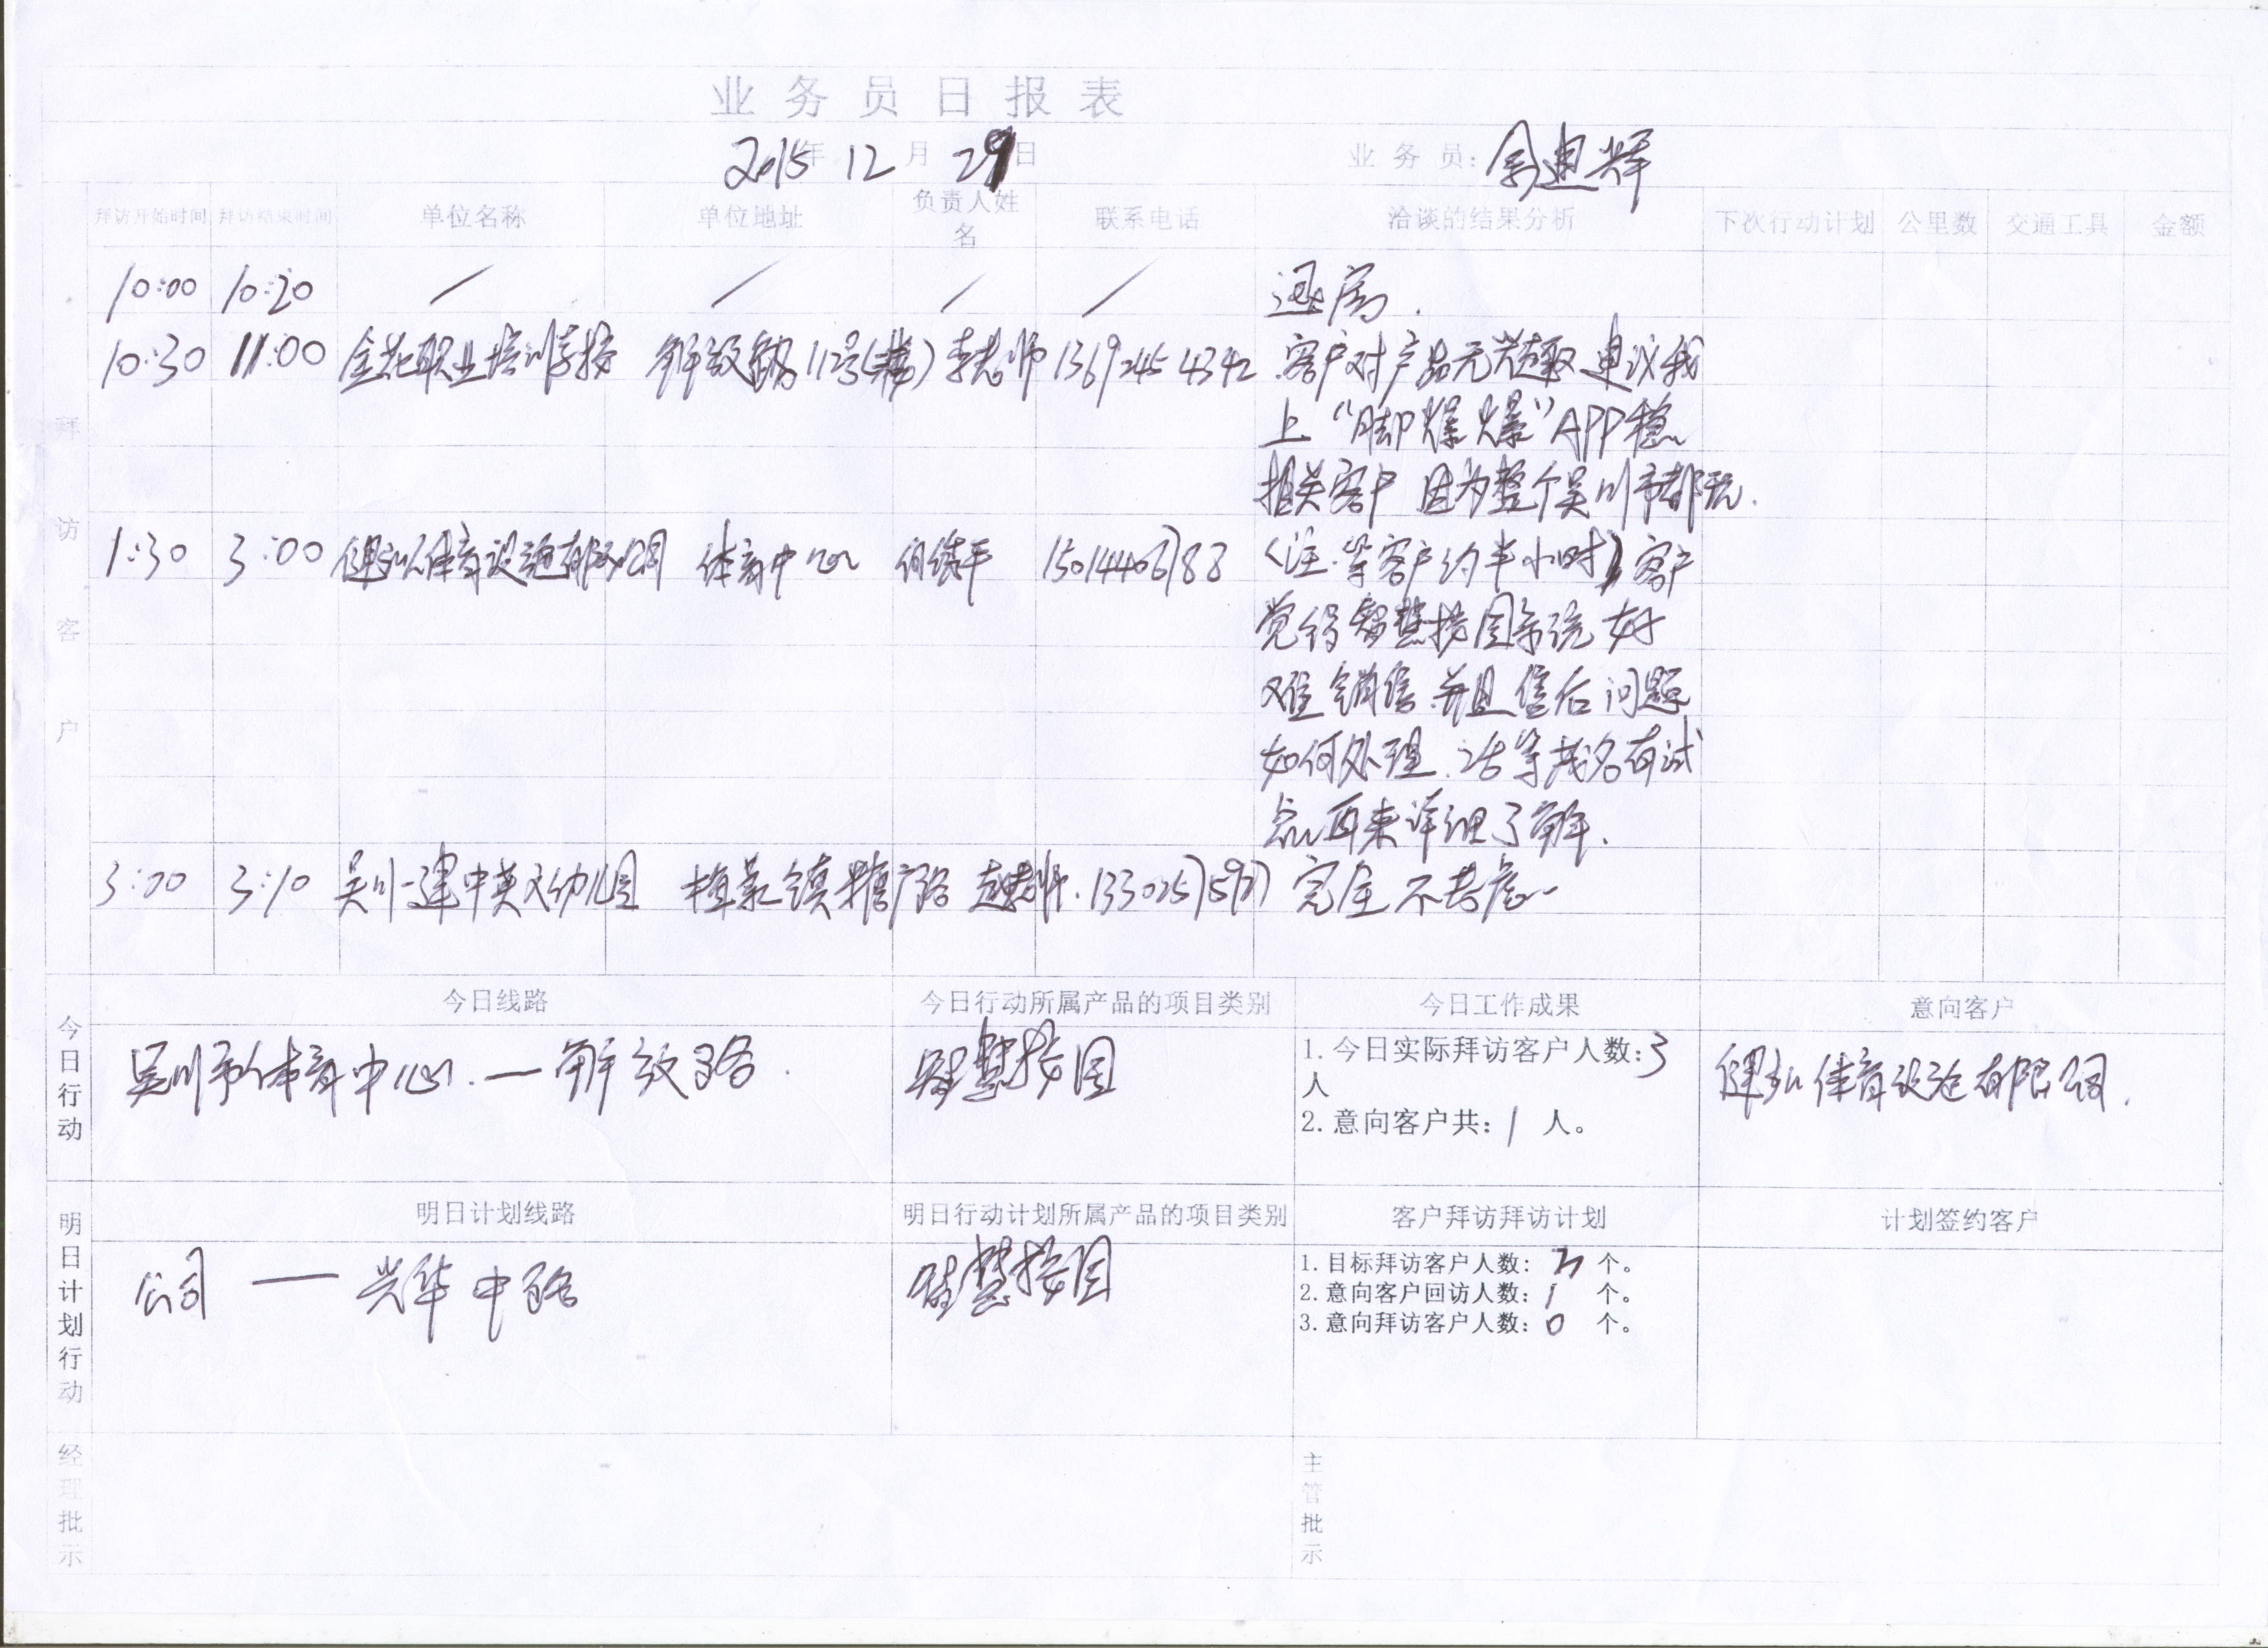 业务员日报表
2015年 12月 29日 业务员:
拜访开始时间 拜访结束时间 单位名称 单位地址 负责人姓名 联系电话 洽谈的结果分析 下次行动计划 公里数 交通工具 金额
拜访客户
10:00 10:20 / / / / 退房.
10:30 11:00 金花职业培训学校 解放路112号 李老师 1369245 4342 客户对产品无兴趣 建议我
上“脚爆爆”APP
相关客户 因为整个吴川市都玩.
1:30 3:00 体育设施有限公司 体育中心 (注.等客户约半小时) 客户
觉得智慧校园系统好
难销售.并且售后问题
如何处理. 等茂名有试
点再来详细了解.
3:00 3:10 吴川一建中英文幼儿园 路 完全不考虑
今日行动
今日线路 今日行动所属产品的项目类别 今日工作成果 意向客户
吴川市体育中心.—解放路. 智慧校园 1.今日实际拜访客户人数:3
人 健弘体育设施有限公司.
2.意向客户共:1 人。
明日计划行动
明日计划线路 明日行动计划所属产品的项目类别 客户拜访拜访计划 计划签约客户
公司 — 兴华中路 智慧校园 1.目标拜访客户人数: 3 个。
2.意向客户回访人数: 1 个。
3.意向拜访客户人数: 0 个。
经理批示 主管批示